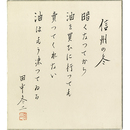 信州の冬
暗くなつてから
油を買ひに行つても
賣つてくれない
油はもう凍つてゐる
田中冬二